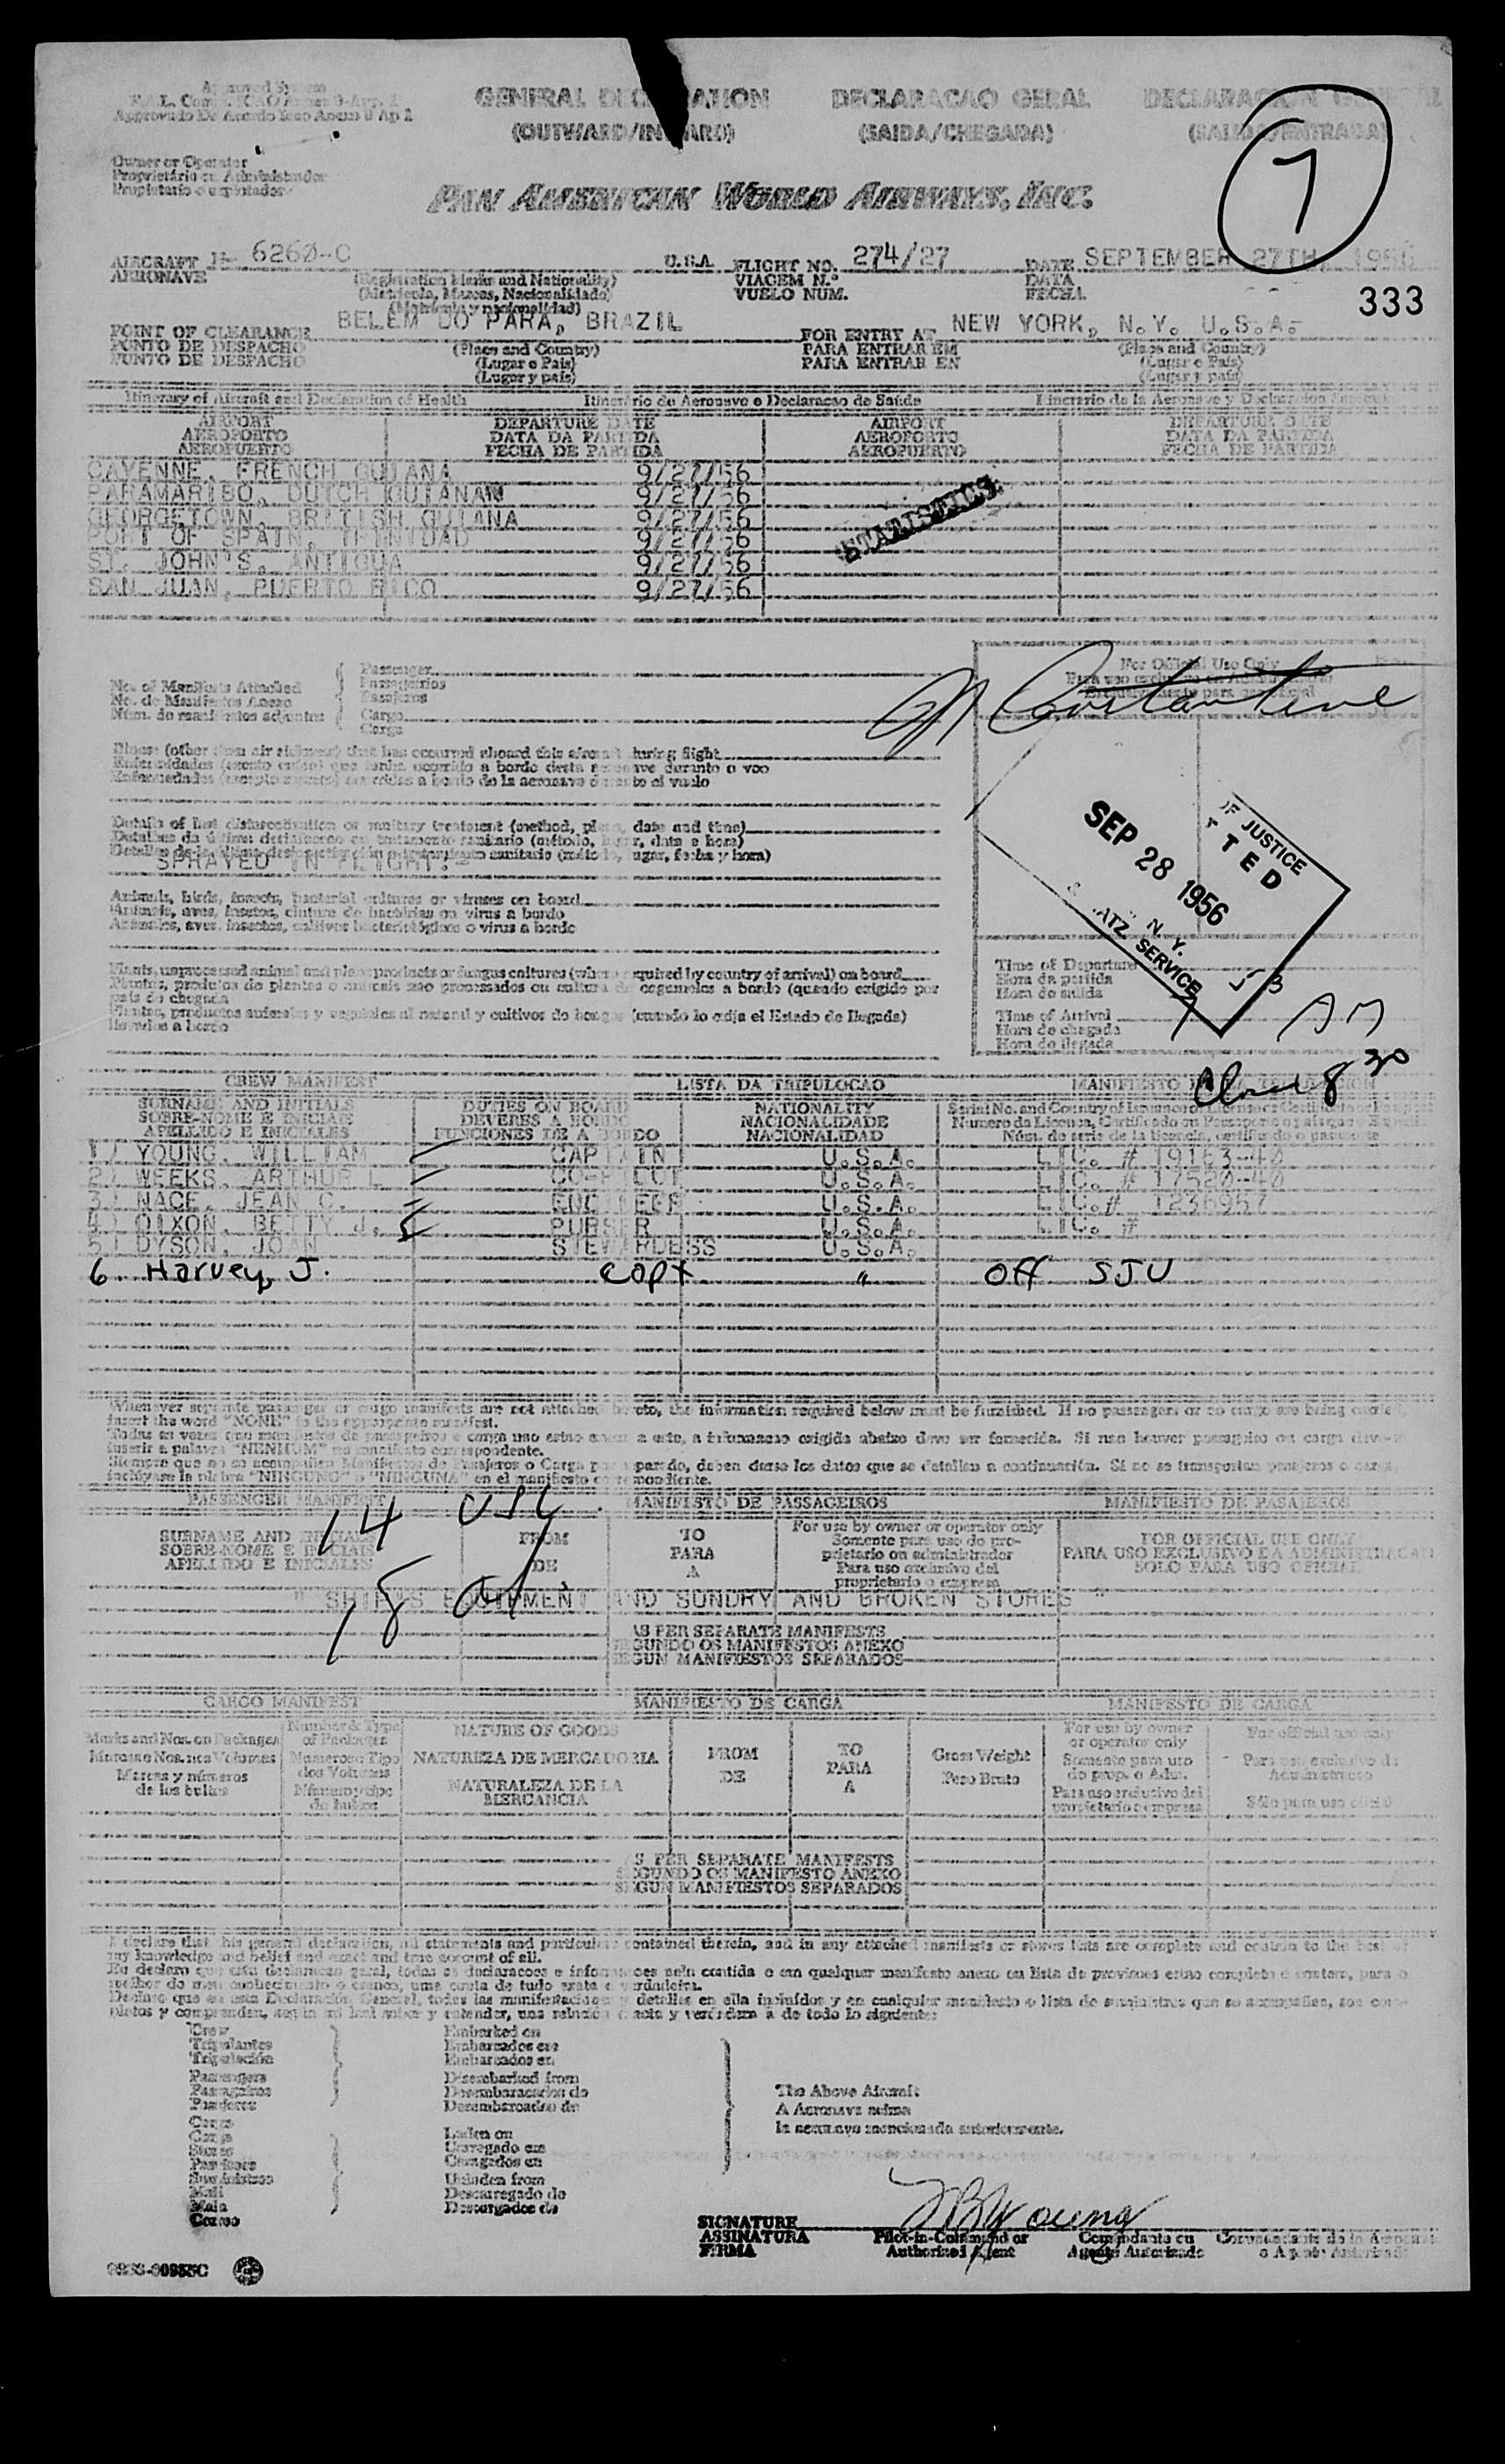 Approved System
F.A.L. Com. ICAO Annex 9-App. 1
Approvado De Acordo Icao Anexo 9 Ap 2
GENERAL DECLARATION DECLARACAO GERAL DECLARACION GENERAL
(OUTWARD/INWARD) (SAIDA/CHEGADA) (SALIDA/ENTRADA)
Owner or Operator
Proprietário ou Administrador
Propietario o explotador
7
PAN AMERICAN WORLD AIRWAYS, INC.
AIRCRAFT N- 6260-C U.S.A. FLIGHT NO. 274/27 DATE SEPTEMBER 27TH, 1956
AERONAVE (Registration Marks and Nationality) VIAGEM N.º DATA
(Matricula, Marcas, Nacionalidade) VUELO NUM. FECHA
(Matrícula y nacionalidad)
333
POINT OF CLEARANCE BELEM DO PARA, BRAZIL FOR ENTRY AT NEW YORK, N.Y. U.S.A.
PONTO DE DESPACHO (Place and Country) PARA ENTRAR EM (Place and Country)
PUNTO DE DESPACHO (Lugar e Pais) PARA ENTRAR EN (Lugar e Pais)
(Lugar y país) (Lugar y país)
Itinerary of Aircraft and Declaration of Health Itinerário de Aeronave e Declaracao de Saúde Itinerario de la Aeronave y Declaracion
AIRPORT DEPARTURE DATE AIRPORT DEPARTURE DATE
AEROPORTO DATA DA PARTIDA AEROPORTO DATA DA PARTIDA
AEROPUERTO FECHA DE PARTIDA AEROPUERTO FECHA DE PARTIDA
CAYENNE, FRENCH GUIANA 9/27/56
PARAMARIBO, DUTCH GUIANA 9/27/56
GEORGETOWN, BRITISH GUIANA 9/27/56
PORT OF SPAIN, TRINIDAD 9/27/56
ST. JOHN'S, ANTIGUA 9/27/56
SAN JUAN, PUERTO RICO 9/27/56
STATISTICS
No. of Manifests Attached
No. de Manifestos Anexo
Núm. de manifiestos adjuntos
Passenger
Passageiros
Pasajeros
Cargo
Carga
For Official Use Only
Costantine
Illness (other than air sickness) that has occurred aboard this aircraft during flight
Enfermidades (exceto enjoo) que tenha ocorrido a bordo desta aeronave durante o voo
Enfermedades (excepto mareo) ocurridas a bordo de la aeronave durante el vuelo
Details of last disinsectization or sanitary treatment (method, place, date and time)
Detalhes da última desinfeccao ou tratamento sanitario (método, lugar, data e hora)
SPRAYED IN FLIGHT.
OF JUSTICE
TTED
SEP 28 1956
N. Y.
ATZ. SERVICE
Animals, birds, insects, bacterial cultures or viruses on board
Animais, aves, insetos, cultura de bactérias ou virus a bordo
Animales, aves, insectos, cultivos bacteriológicos o virus a bordo
Plants, unprocessed animal and plant products or fungus cultures (where required by country of arrival) on board
Plantas, produtos de plantas o animais nao processados ou cultura de cogumelos a bordo (quando exigido por
pais de chegada
Plantas, productos animales y vegetales al natural y cultivos de hongos (cuando lo exija el Estado de llegada)
llevados a bordo
Time of Departure
Hora da partida
Hora de salida
Time of Arrival
Hora de chegada
Hora de llegada
AM
8 30
CREW MANIFEST LISTA DA TRIPULOCAO MANIFIESTO DE LA TRIPULACION
SURNAME AND INITIALS DUTIES ON BOARD NATIONALITY
SOBRE-NOME E INICIAIS DEVERES A BORDO NACIONALIDADE
APELLIDO E INICIALES FUNCIONES DE A BORDO NACIONALIDAD
1) YOUNG, WILLIAM CAPTAIN U.S.A. LIC. # 19163-40
2) WEEKS, ARTHUR L. CO-PILOT U.S.A. LIC. # 17520-40
3) NACE, JEAN C. ENGINEER U.S.A. LIC.# 1236957
4) DIXON, BETTY J. PURSER U.S.A. LIC. #
5) DYSON, JOAN STEWARDESS U.S.A.
6 Harvey, J. Capt " Off SJU
Whenever separate passenger or cargo manifests are not attached hereto, the information required below must be furnished. If no passengers or no cargo are being carried,
insert the word "NONE" in the appropriate manifest.
inserir a palavra "NENHUM" no manifesto correspondente.
Siempre que no se acompañen Manifiestos de Pasajeros o Carga por separado, deben darse los datos que se detallan a continuación. Si no se transportan pasajeros o carga,
inclúyase la palabra "NINGUNO" o "NINGUNA" en el manifiesto correspondiente.
PASSENGER MANIFEST MANIFESTO DE PASSAGEIROS MANIFIESTO DE PASAJEROS
14 USC
SURNAME AND INITIALS FROM TO For use by owner or operator only FOR OFFICIAL USE ONLY
SOBRE-NOME E INICIAIS DE PARA Somente para uso do proprietario ou administrador PARA USO EXCLUSIVO DA ADMINISTRACAO
APELLIDO E INICIALES A Para uso exclusivo del propietario o empresa SOLO PARA USO OFICIAL
18
" SHIP'S EQUIPMENT AND SUNDRY AND BROKEN STORES "
AS PER SEPARATE MANIFESTS
SEGUNDO OS MANIFESTOS ANEXO
SEGUN MANIFIESTOS SEPARADOS
CARGO MANIFEST MANIFIESTO DE CARGA MANIFESTO DE CARGA
Marks and Nos. on Packages Number & Type of Packages NATURE OF GOODS FROM TO Gross Weight For use by owner or operator only For official use only
Marcas e Nos. nos Volumes Numero ou Tipo dos Volumes NATUREZA DE MERCADORIA DE PARA Peso Bruto Somente para uso do prop. o Adm. Para uso exclusivo da Administracao
Marcas y números de los bultos Número y tipo de bultos NATURALEZA DE LA MERCANCIA A Para uso exclusivo del propietario o empresa Sólo para uso oficial
AS PER SEPARATE MANIFESTS
SEGUNDO OS MANIFESTO ANEXO
SEGUN MANIFIESTOS SEPARADOS
I declare that this general declaration, all statements and particulars contained therein, and in any attached manifests or stores lists are complete and contain to the best of
my knowledge and belief and exact and true account of all.
Crew
Tripulantes
Tripulación
Passengers
Passageiros
Pasajeros
Cargo
Carga
Stores
Mail
Mala
Correo
Embarked on
Embarcados em
Embarcados en
Disembarked from
Desembarcados do
Desembarcados de
Laden on
Carregado em
Cargados en
Unladen from
Descarregado do
Descargados de
The Above Aircraft
A Aeronave acima
la aeronave mencionada anteriormente.
SIGNATURE
ASSINATURA
FIRMA
Young
Pilot-in-Command or Authorized Agent
Comandante ou Agente Autorizado
Comandante de la Aeronave o Agente Autorizado